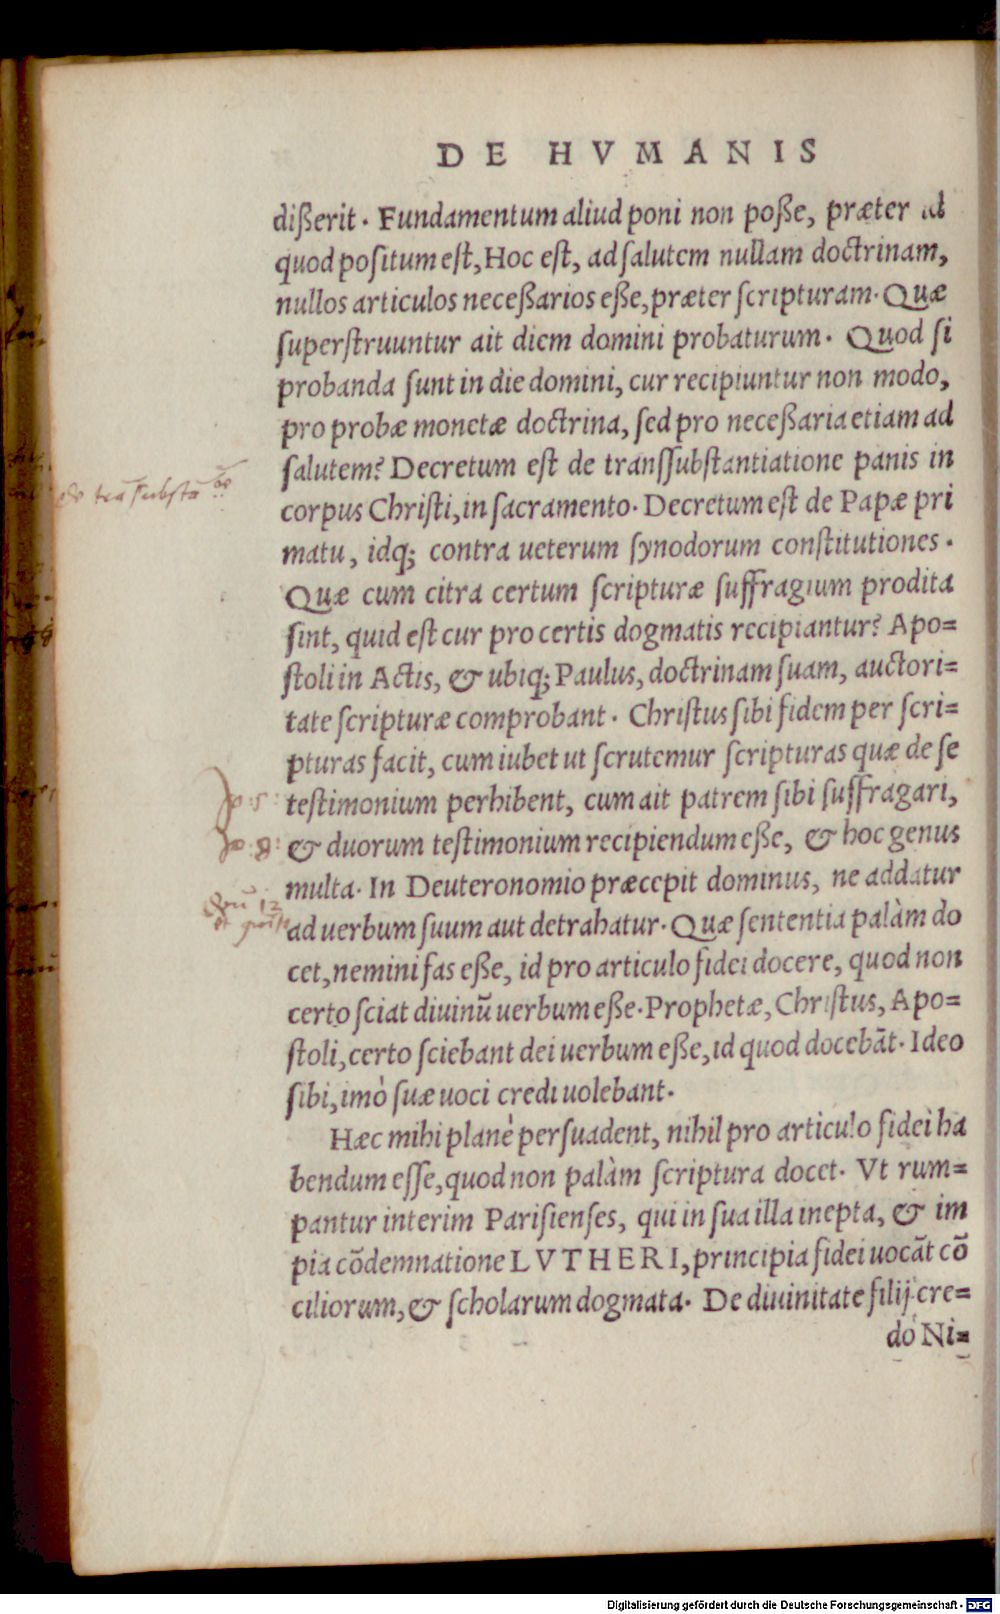 DE HVMANIS
dißerit. Fundamentum aliud poni non poße, præter id
quod positum est, Hoc est, ad salutem nullam doctrinam,
nullos articulos neceßarios eße, præter scripturam. Quæ
superstruuntur ait diem domini probaturum. Quod si
probanda sunt in die domini, cur recipiuntur non modo,
pro probæ monetæ doctrina, sed pro neceßaria etiam ad
salutem? Decretum est de transsubstantiatione panis in
corpus Christi, in sacramento. Decretum est de Papæ pri
matu, idq; contra ueterum synodorum constitutiones.
Quæ cum citra certum scripturæ suffragium prodita
sint, quid est cur pro certis dogmatis recipiantur? Apo=
stoli in Actis, & ubiq; Paulus, doctrinam suam, auctori=
tate scripturæ comprobant. Christus sibi fidem per scri=
pturas facit, cum iubet ut scrutemur scripturas quæ de se
testimonium perhibent, cum ait patrem sibi suffragari,
& duorum testimonium recipiendum eße, & hoc genus
multa. In Deuteronomio præcepit dominus, ne addatur
ad uerbum suum aut detrahatur. Quæ sententia palàm do
cet, nemini fas eße, id pro articulo fidei docere, quod non
certo sciat diuinũ uerbum eße. Prophetæ, Christus, Apo=
stoli, certo sciebant dei uerbum eße, id quod docebãt. Ideo
sibi, imò suæ uoci credi uolebant.
Hæc mihi planè persuadent, nihil pro articulo fidei ha
bendum esse, quod non palàm scriptura docet. Vt rum=
pantur interim Parisienses, qui in sua illa inepta, & im
pia cõdemnatione LVTHERI, principia fidei uocãt cõ
ciliorum, & scholarum dogmata. De diuinitate filij cre=
do Ni=
Jo: 5:
Jo: 8:
Digitalisierung gefördert durch die Deutsche Forschungsgemeinschaft - DFG